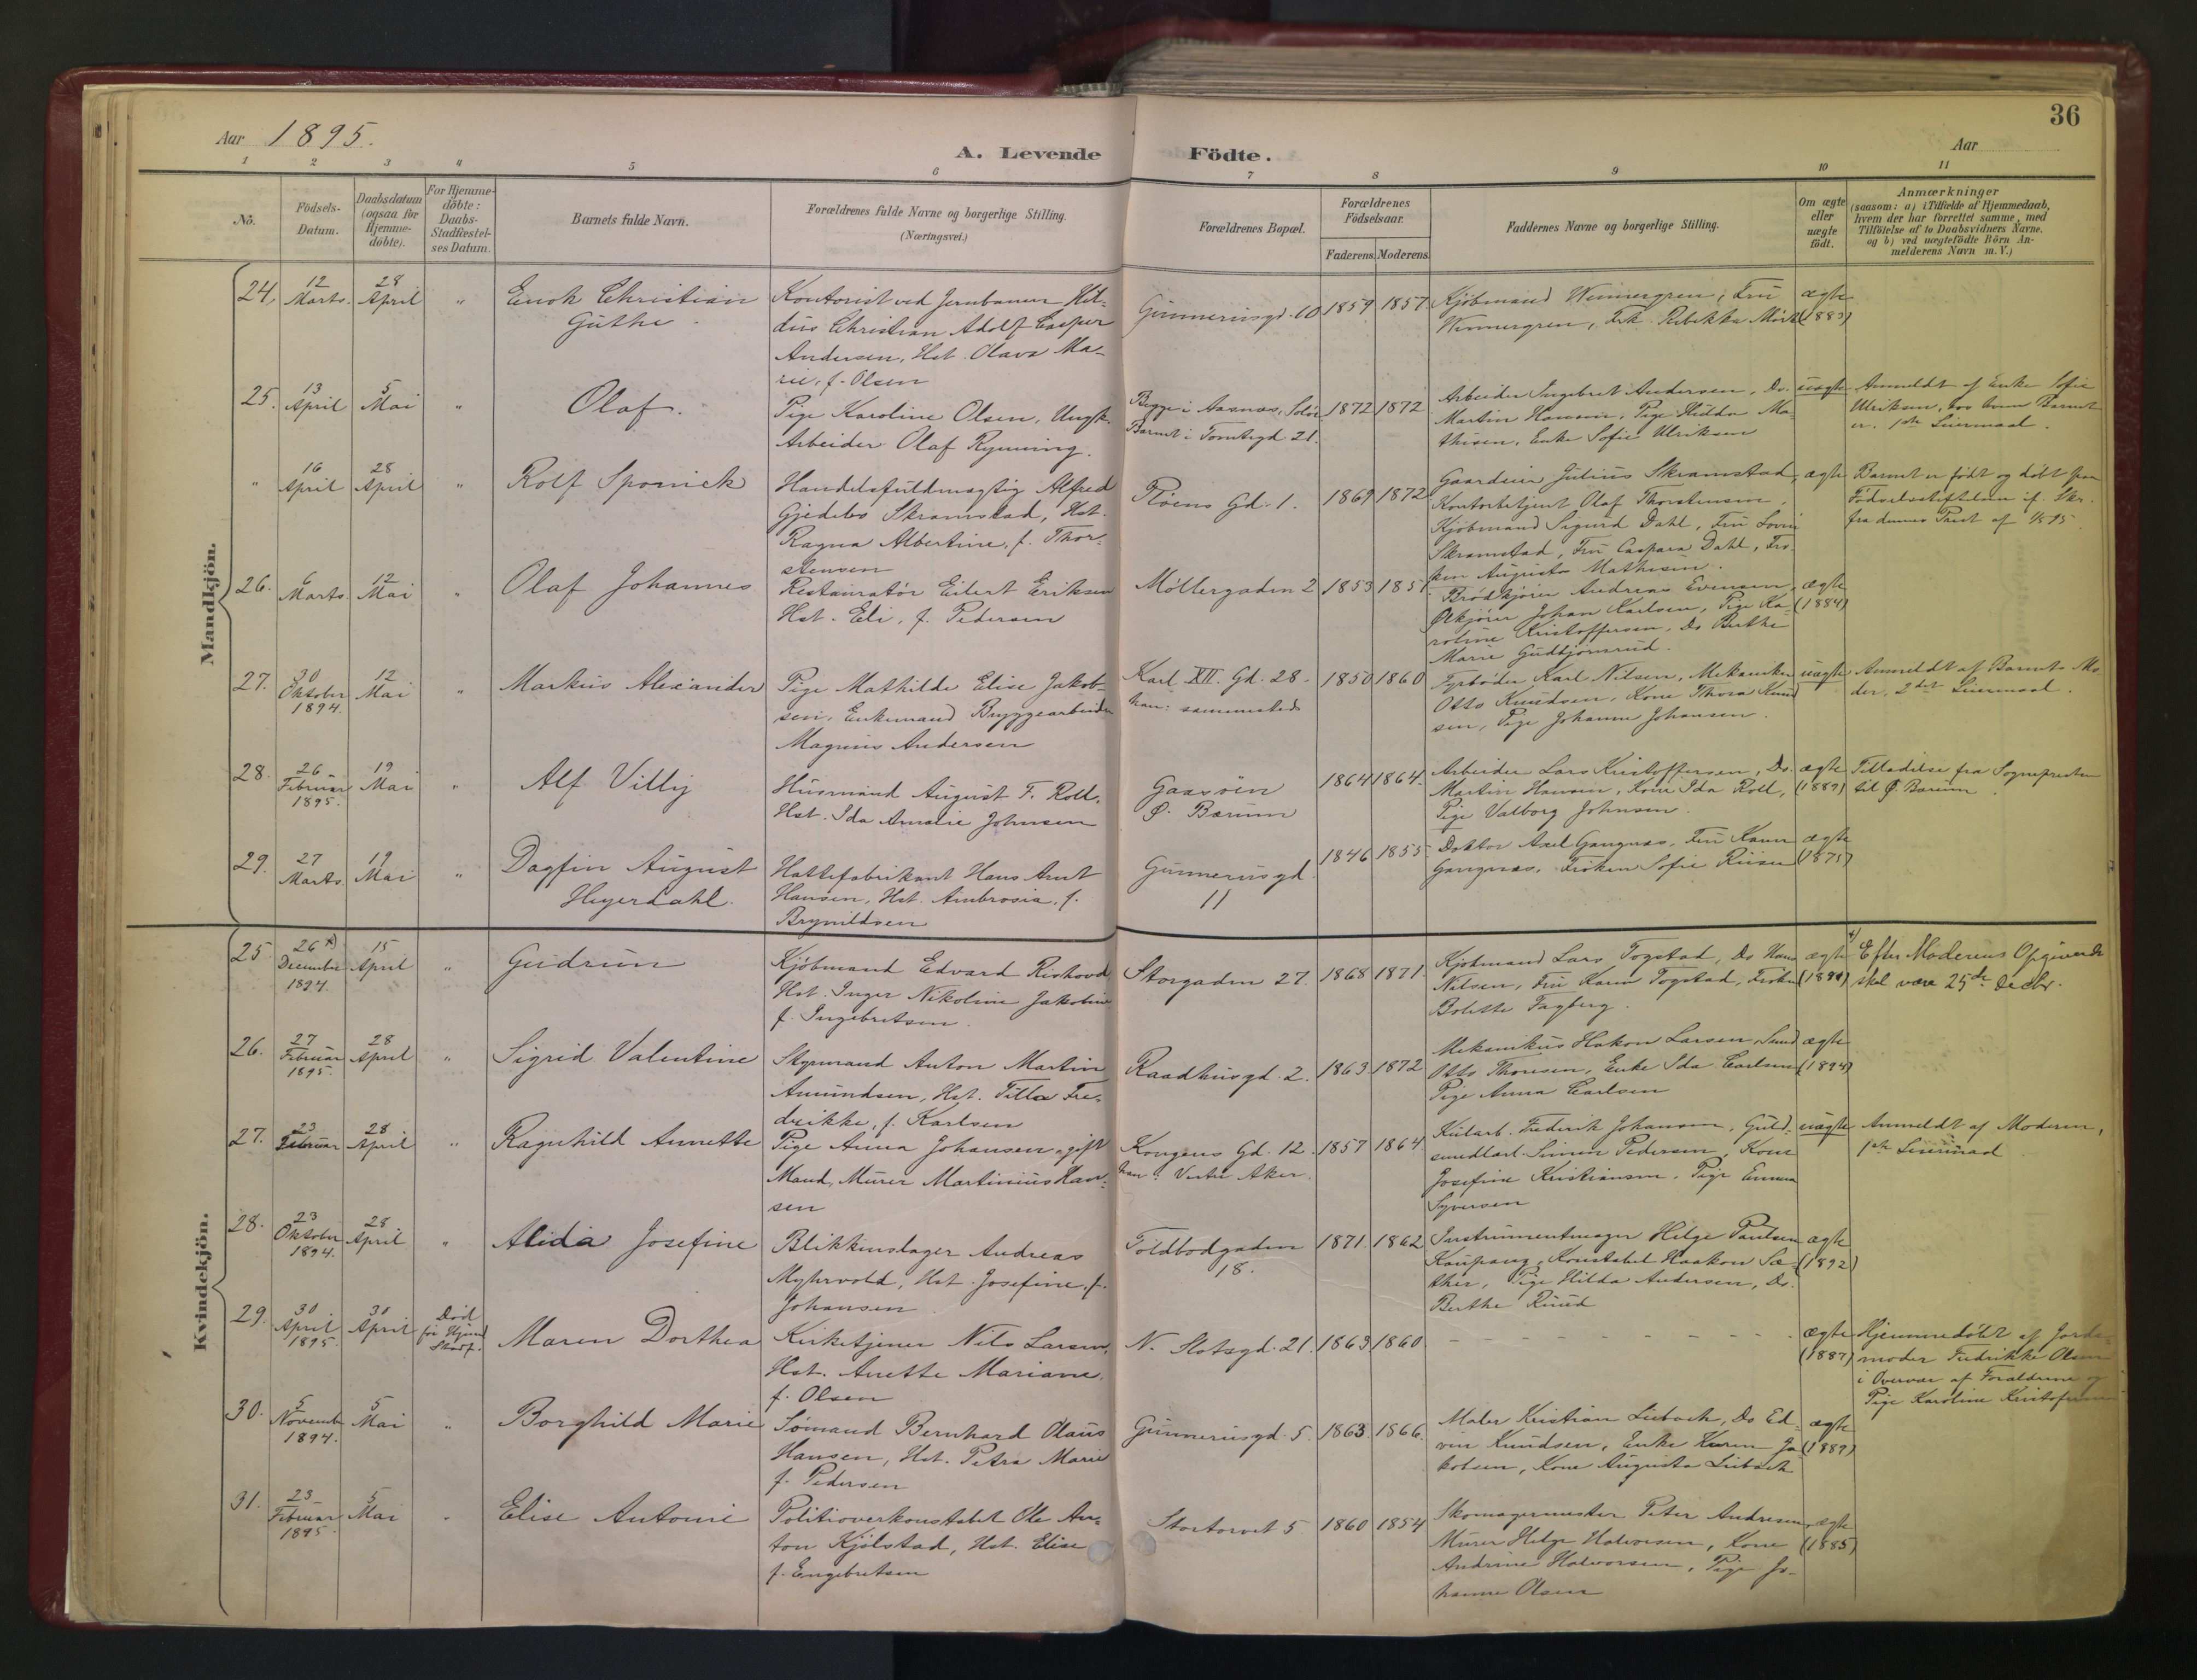 36
Aar 1895.
A. Levende Födte.
Aar
1 2 3 4 5 6 7 8 9 10 11
Nö.
Födsels-Datum.
Daabsdatum (ogsaa for Hjemme-döbte).
For Hjemme-döbte: Daabs-Stadfæstel-ses Datum.
Barnets fulde Navn.
Forældrenes fulde Navne og borgerlige Stilling.
(Næringsvei.)
Forældrenes Bopæl.
Forældrenes Födselsaar.
Faderens. Moderens.
Faddernes Navne og borgerlige Stilling.
Om ægte eller uægte födt.
Anmærkninger
(saasom: a) i Tilfælde af Hjemmedaab,
hvem der har forrettet samme, med
Tilföielse af to Daabsvidners Navne.
og b) ved uægtefödte Börn An-
melderens Navn m. V.)
Mandkjön.
24. 12 Marts 28 April " Enok Christian Güthe
Kontorist ved Jernbanen
Christian Adolf Casper
Andersen, Hst. Olava Ma-
rie, f. Olsen
Gunnerusgd. 10 1859 1857
Kjöbmand Wennergren, Fru
Wennergren, Frk. Rebekka
ægte (1883)
25. 13 April 5 Mai " Olaf.
Pige Karoline Olsen, Ungk.
Arbeider Olaf Rynning.
Begge i Aasnæs, Solör
Barnet i Tomtegd. 21.
1872 1872
Arbeider Ingebret Andersen, Do.
Martin Hansen, Pige Hidda Ma-
thisen, Enke Sofie Ulriksen
uægte
Anmeldt af Enke Sofie
Ulriksen, hos hvem Barnet
er. 1ste Leiermaal.
" 16 April 28 April " Rolf Sponick
Handelsfuldmægtig Alfred
Gjedebo Skramstad, Hst.
Ragna Albertine, f. Thor-
stensen
Pløens Gd. 1. 1869 1872
Gaardeier Julius Skramstad,
Kontorbetjent Olaf Thorstensen,
Kjöbmand Sigurd Dahl, Fru Lovise
Skramstad, Fru Caspara Dahl, Frö-
ken Augusta Mathisen.
ægte
Barnet er født og døbt paa
Fødselsstiftelsen if. Skr.
fra dennes Præst af 1/5 95.
26. 6 Marts 12 Mai " Olaf Johannes
Restauratør Eilert Eriksen
Hst. Eli, f. Pedersen
Møllergaden 2 1853 1851
Brødkjører Andreas Evensen,
Ølkjører Johan Karlsen, Pige Ka-
roline Kristoffersen, Do Berthe
Marie Gudbjørnsrud.
ægte (1884)
27. 30 Oktober 1894. 12 Mai " Markus Alexander
Pige Mathilde Elise Jakob-
sen, Enkemand Bryggearbeider
Magnus Andersen
Karl XII. Gd. 28.
han: sammesteds
1850 1860
Fyrbøder Karl Nilsen, Mekaniker
Otto Knudsen, Kone Thora Knud-
sen, Pige Johanne Johansen.
uægte
Anmeldt af Barnets Mo-
der, 2det Leiermaal.
28. 26 Februar 1895. 19 Mai " Alf Villy
Husmand August F. Roll,
Hst. Ida Amalie Johnsen
Gaasöen
Ø. Bærum
1864 1864.
Arbeider Lars Kristoffersen, Do.
Martin Hansen, Kone Ida Roll,
Pige Valborg Johnsen.
ægte (1889)
Tilladelse fra Sognepresten
til Ø. Bærum.
29. 27 Marts 19 Mai " Dagfin August Heyerdahl.
Hattefabrikant Hans Arnt
Hansen, Hst. Ambrosia, f.
Brynildsen
Gunnerusgd. 11
1846 1855
Doktor Axel Gangnæs, Fru Karen
Gangnæs, Frøken Sofie Riiser
ægte (1875)
Kvindekjön.
25. 26 *) December 1894. 15 April " Gudrun
Kjöbmand Edvard Rishovd
Hst. Inger Nikoline Jakobine
f. Ingebretsen.
Storgaden 27. 1868 1871
Kjöbmand Lars Togstad, Do Hans
Nilsen, Fru Karen Togstad, Frøken
Bolette Fagberg.
ægte
*) Efter Moderens Opgivende
skal være 25de Decbr.
26. 27 Februar 1895. 28 April " Sigrid Valentine
Styrmand Anton Martin
Amundsen, Hst. Tilla Fre-
drikke, f. Karlsen
Raadhusgd. 2. 1863 1872
Mekanikus Hakon Larsen,
Otto Thoresen, Enke Ida Carlsen
Pige Anna Carlsen
ægte (1894)
27. 23 Februar 28 April " Ragnhild Annette
Pige Anna Johansen, gift
Mand, Murer Martinius Han-
sen
Kongens Gd. 12.
han: Vestre Aker.
1857 1864
Kularb. Frederik Johansen, Guld-
smedlærl. Simen Pedersen, Kone
Josefine Kristiansen, Pige Emma
Syversen
uægte
Anmeldt af Moderen,
1ste Leiermaal
28. 23 Oktober 1894. 28 April " Alida Josefine
Blikkenslager Andreas
Myhrvold, Hst. Josefine, f.
Johansen
Toldbodgaden 18.
1871. 1862
Instrumentmager Helge Paulsen
Kaupang, Konstabel Haakon Sæ-
ther, Pige Hilda Andersen, Do.
Berthe Ruud
ægte (1892)
29. 30 April 1895. 30 April Død før Hjemd. Stadf.
Maren Dorthea
Kirketjener Nils Larsen,
Hst. Anette Mariane,
f. Olsen
N. Slotsgd. 21. 1863 1860
- - - - - - - -
ægte (1887)
Hjemmedøbt af Jorde-
moder Fredrikke Olsen
i Overvær af Forældrene og
Pige Karoline Kristofersen
30. 5 Novemb. 1894. 5 Mai " Borghild Marie
Sømand Bernhard Olaus
Hansen, Hst. Petra Marie
f. Pedersen
Gunnerusgd. 5. 1863 1866.
Maler Kristian Liebach, Do Ed-
vin Knudsen, Enke Karen Ja-
kobsen, Kone Augusta Liebach
ægte (1889)
31. 23 Februar 1895 5 Mai " Elise Antonie
Politioverkonstabel Ole An-
ton Kjølstad, Hst. Elise
f. Engebretsen
Stortorvet 5. 1860 1854
Skomagermester Peter Andresen,
Murer Helge Halvorsen, Kone
Andrine Halvorsen, Pige Jo-
hanne Olsen
ægte (1885)